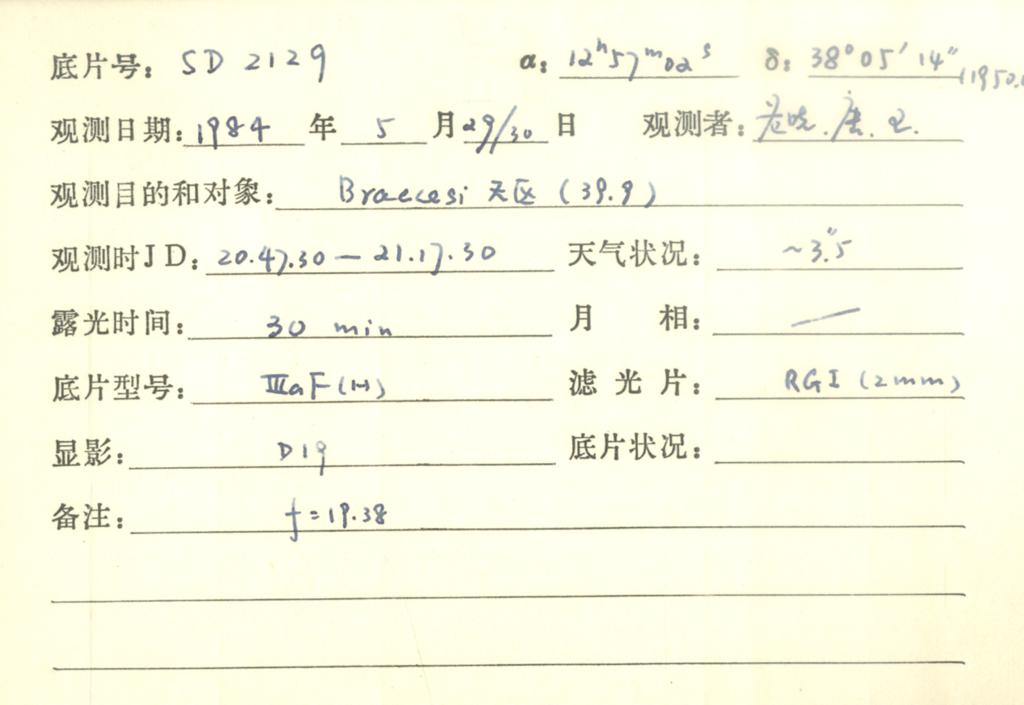 底片号: SD 2129 α: 12ʰ57ᵐ02ˢ δ: 38°05′14″ (1950.
观测日期: 1984 年 5 月 29/30 日 观测者:
观测目的和对象: Braccesi 天区 (39.9)
观测时JD: 20.47.30 — 21.17.30 天气状况: ~3″.5
露光时间: 30 min 月 相: —
底片型号: ⅢaF(H) 滤光片: RG1 (2mm)
显影: D19 底片状况:
备注: f=19.38